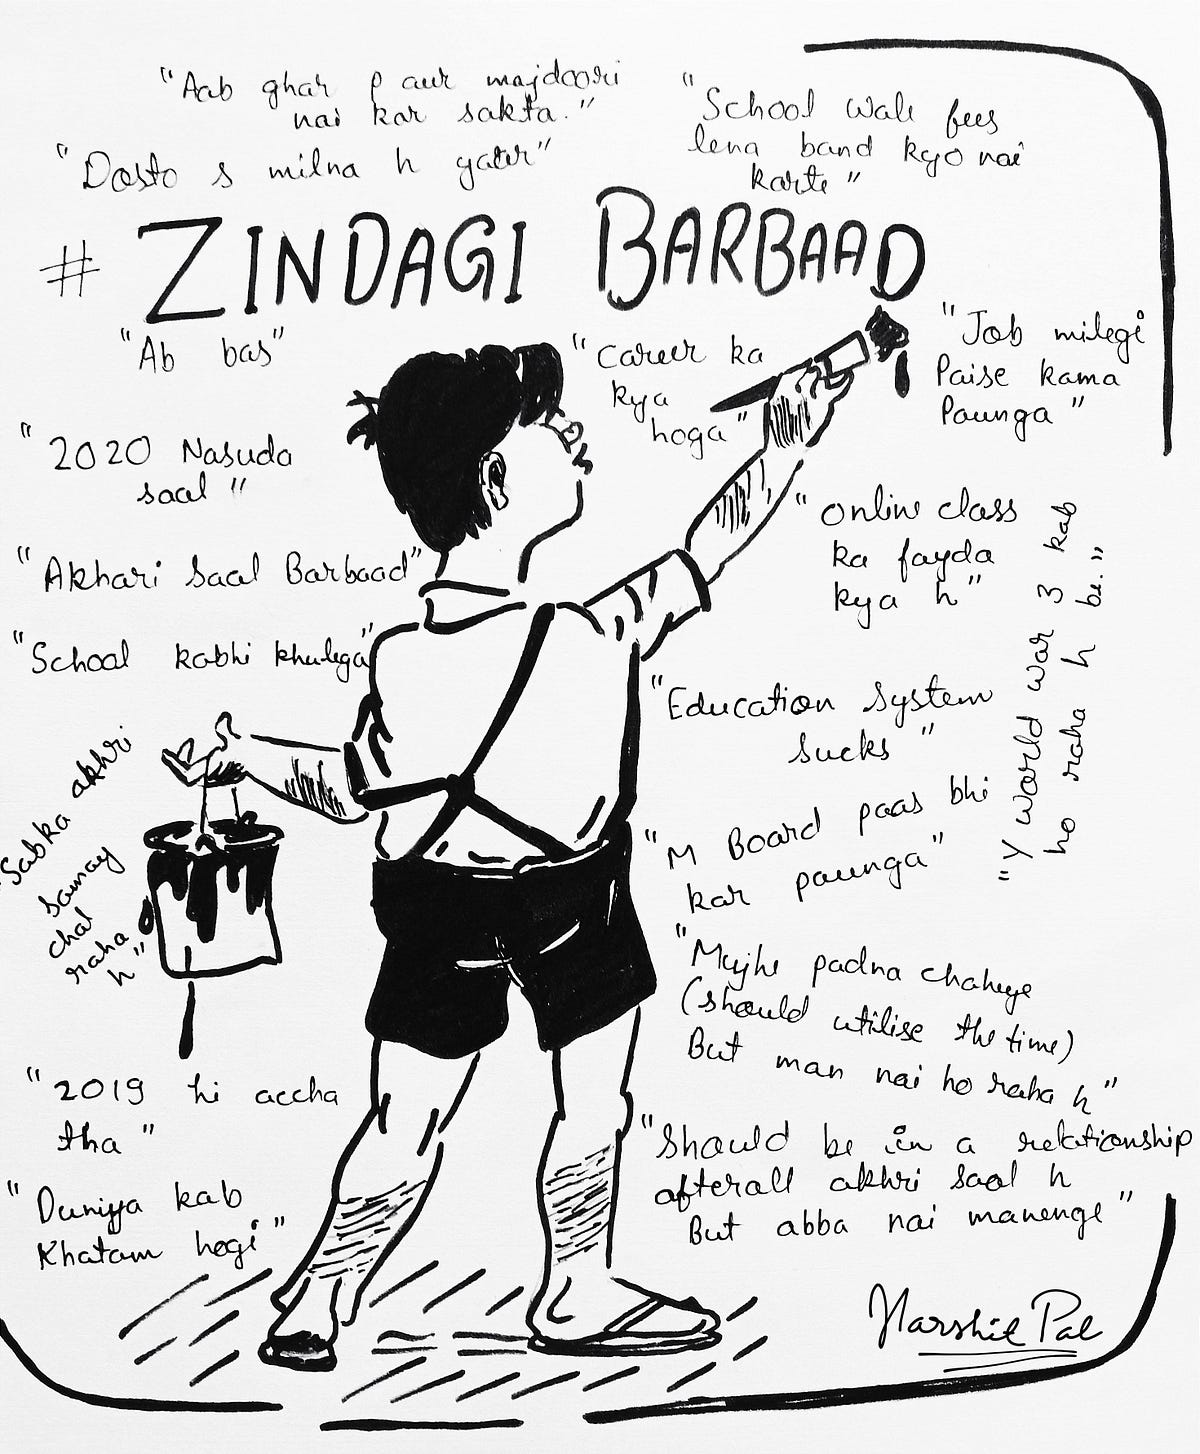 "Aab ghar p aur majdoori
nai kar sakta."
"School wale fees
lena band kyo nai
karte"
"Dosto s milna h yaar"
# ZINDAGI BARBAAD
"Ab bas"
"Career ka
kya
hoga"
"Job milegi
Paise kama
Paunga"
"2020 Nasuda
saal"
"Online class
ka fayda
kya h"
"Y world war 3 kab
ho raha h be."
"Akhari saal Barbaad"
"School kabhi khulega"
"Education system
sucks"
"Sabka akhri
samay
chal
raha
h"
"M Board paas bhi
kar paunga"
"Mujhe padna chaheye
(should utilise the time)
But man nai ho raha h"
"2019 hi accha
tha"
"Should be in a relationship
afterall akhri saal h
But abba nai manenge"
"Duniya kab
Khatam hogi"
Harshit Pal